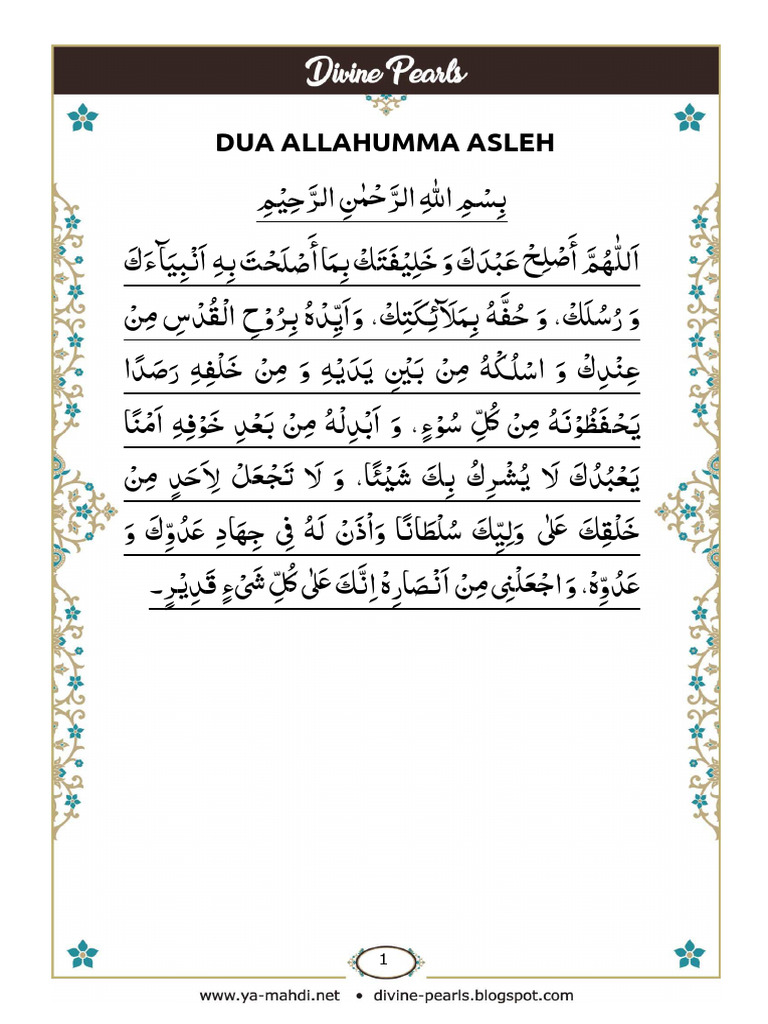 Divine Pearls
DUA ALLAHUMMA ASLEH
بِسْمِ اللهِ الرَّحْمٰنِ الرَّحِيْمِ
اَللّٰهُمَّ أَصْلِحْ عَبْدَكَ وَ خَلِيْفَتَكَ بِمَا أَصْلَحْتَ بِهِ اَنْبِيَآءَكَ
وَ رُسُلَكَ، وَ حُفَّهُ بِمَلَآئِكَتِكَ، وَ اَيِّدْهُ بِرُوْحِ الْقُدْسِ مِنْ
عِنْدِكَ وَ اسْلُكْهُ مِنْ بَيْنِ يَدَيْهِ وَ مِنْ خَلْفِهِ رَصَدًا
يَحْفَظُوْنَهُ مِنْ كُلِّ سُوْءٍ، وَ اَبْدِلْهُ مِنْ بَعْدِ خَوْفِهِ اَمْنًا
يَعْبُدُكَ لَا يُشْرِكُ بِكَ شَيْئًا، وَ لَا تَجْعَلْ لِاَحَدٍ مِنْ
خَلْقِكَ عَلٰى وَلِيِّكَ سُلْطَانًا وَاْذَنْ لَهُ فِي جِهَادِ عَدُوِّكَ وَ
عَدُوِّهْ، وَ اجْعَلْنِى مِنْ اَنْصَارِهْ اِنَّكَ عَلٰى كُلِّ شَىْءٍ قَدِيْرٍ۔
1
www.ya-mahdi.net • divine-pearls.blogspot.com